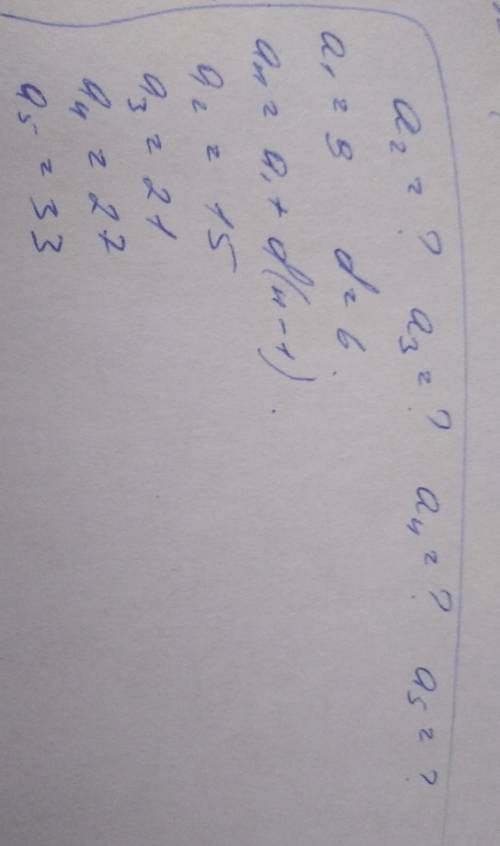 a₂ = ? a₃ = ? a₄ = ? a₅ = ?
a₁ = 9 d = 6
aₙ = a₁ + d(n-1)
a₂ = 15
a₃ = 21
a₄ = 27
a₅ = 33